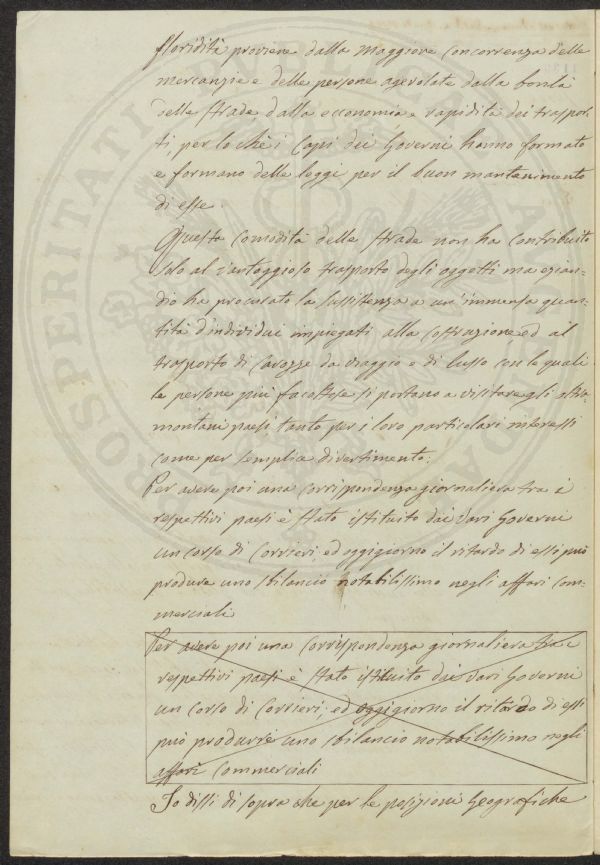 floridità proviene dalla maggiore concorrenza delle
mercanzie e delle persone agevolate dalla bontà
delle strade dalla economia e rapidità dei traspor-
ti, per lo chè i Capi dei Governi hanno formato
e formano delle leggi per il buon mantenimento
di esse.
Questa comodità delle strade non ha contribuito
solo al vantaggioso trasporto degli oggetti ma ezian-
dio ha procurato la sussistenza a un'immensa quan-
tità d'individui impiegati alla costruzione, ed al
trasporto di Carozze da viaggio e di lusso con le quali
le persone più facoltose si portano a visitare gli oltra-
montani paesi tanto per i loro particolari interessi
come per semplice divertimento.
Per avere poi una corrispondenza giornaliera tra i
respettivi paesi è stato istituito dai vari Governi
un corso di Corrieri, ed oggigiorno il ritardo di essi può
produre uno sbilancio notabilissimo negli affari com-
merciali
Per avere poi una Corrispondenza giornaliera tra i
respettivi paesi è stato istituito dai vari Governi
un corso di Corrieri, ed oggigiorno il ritardo di essi
può produrre uno sbilancio notabilissimo negli
affari Commerciali
Io dissi di sopra che per le posizioni Geografiche
PROSPERITATI PUBLICAE AUGENDAE